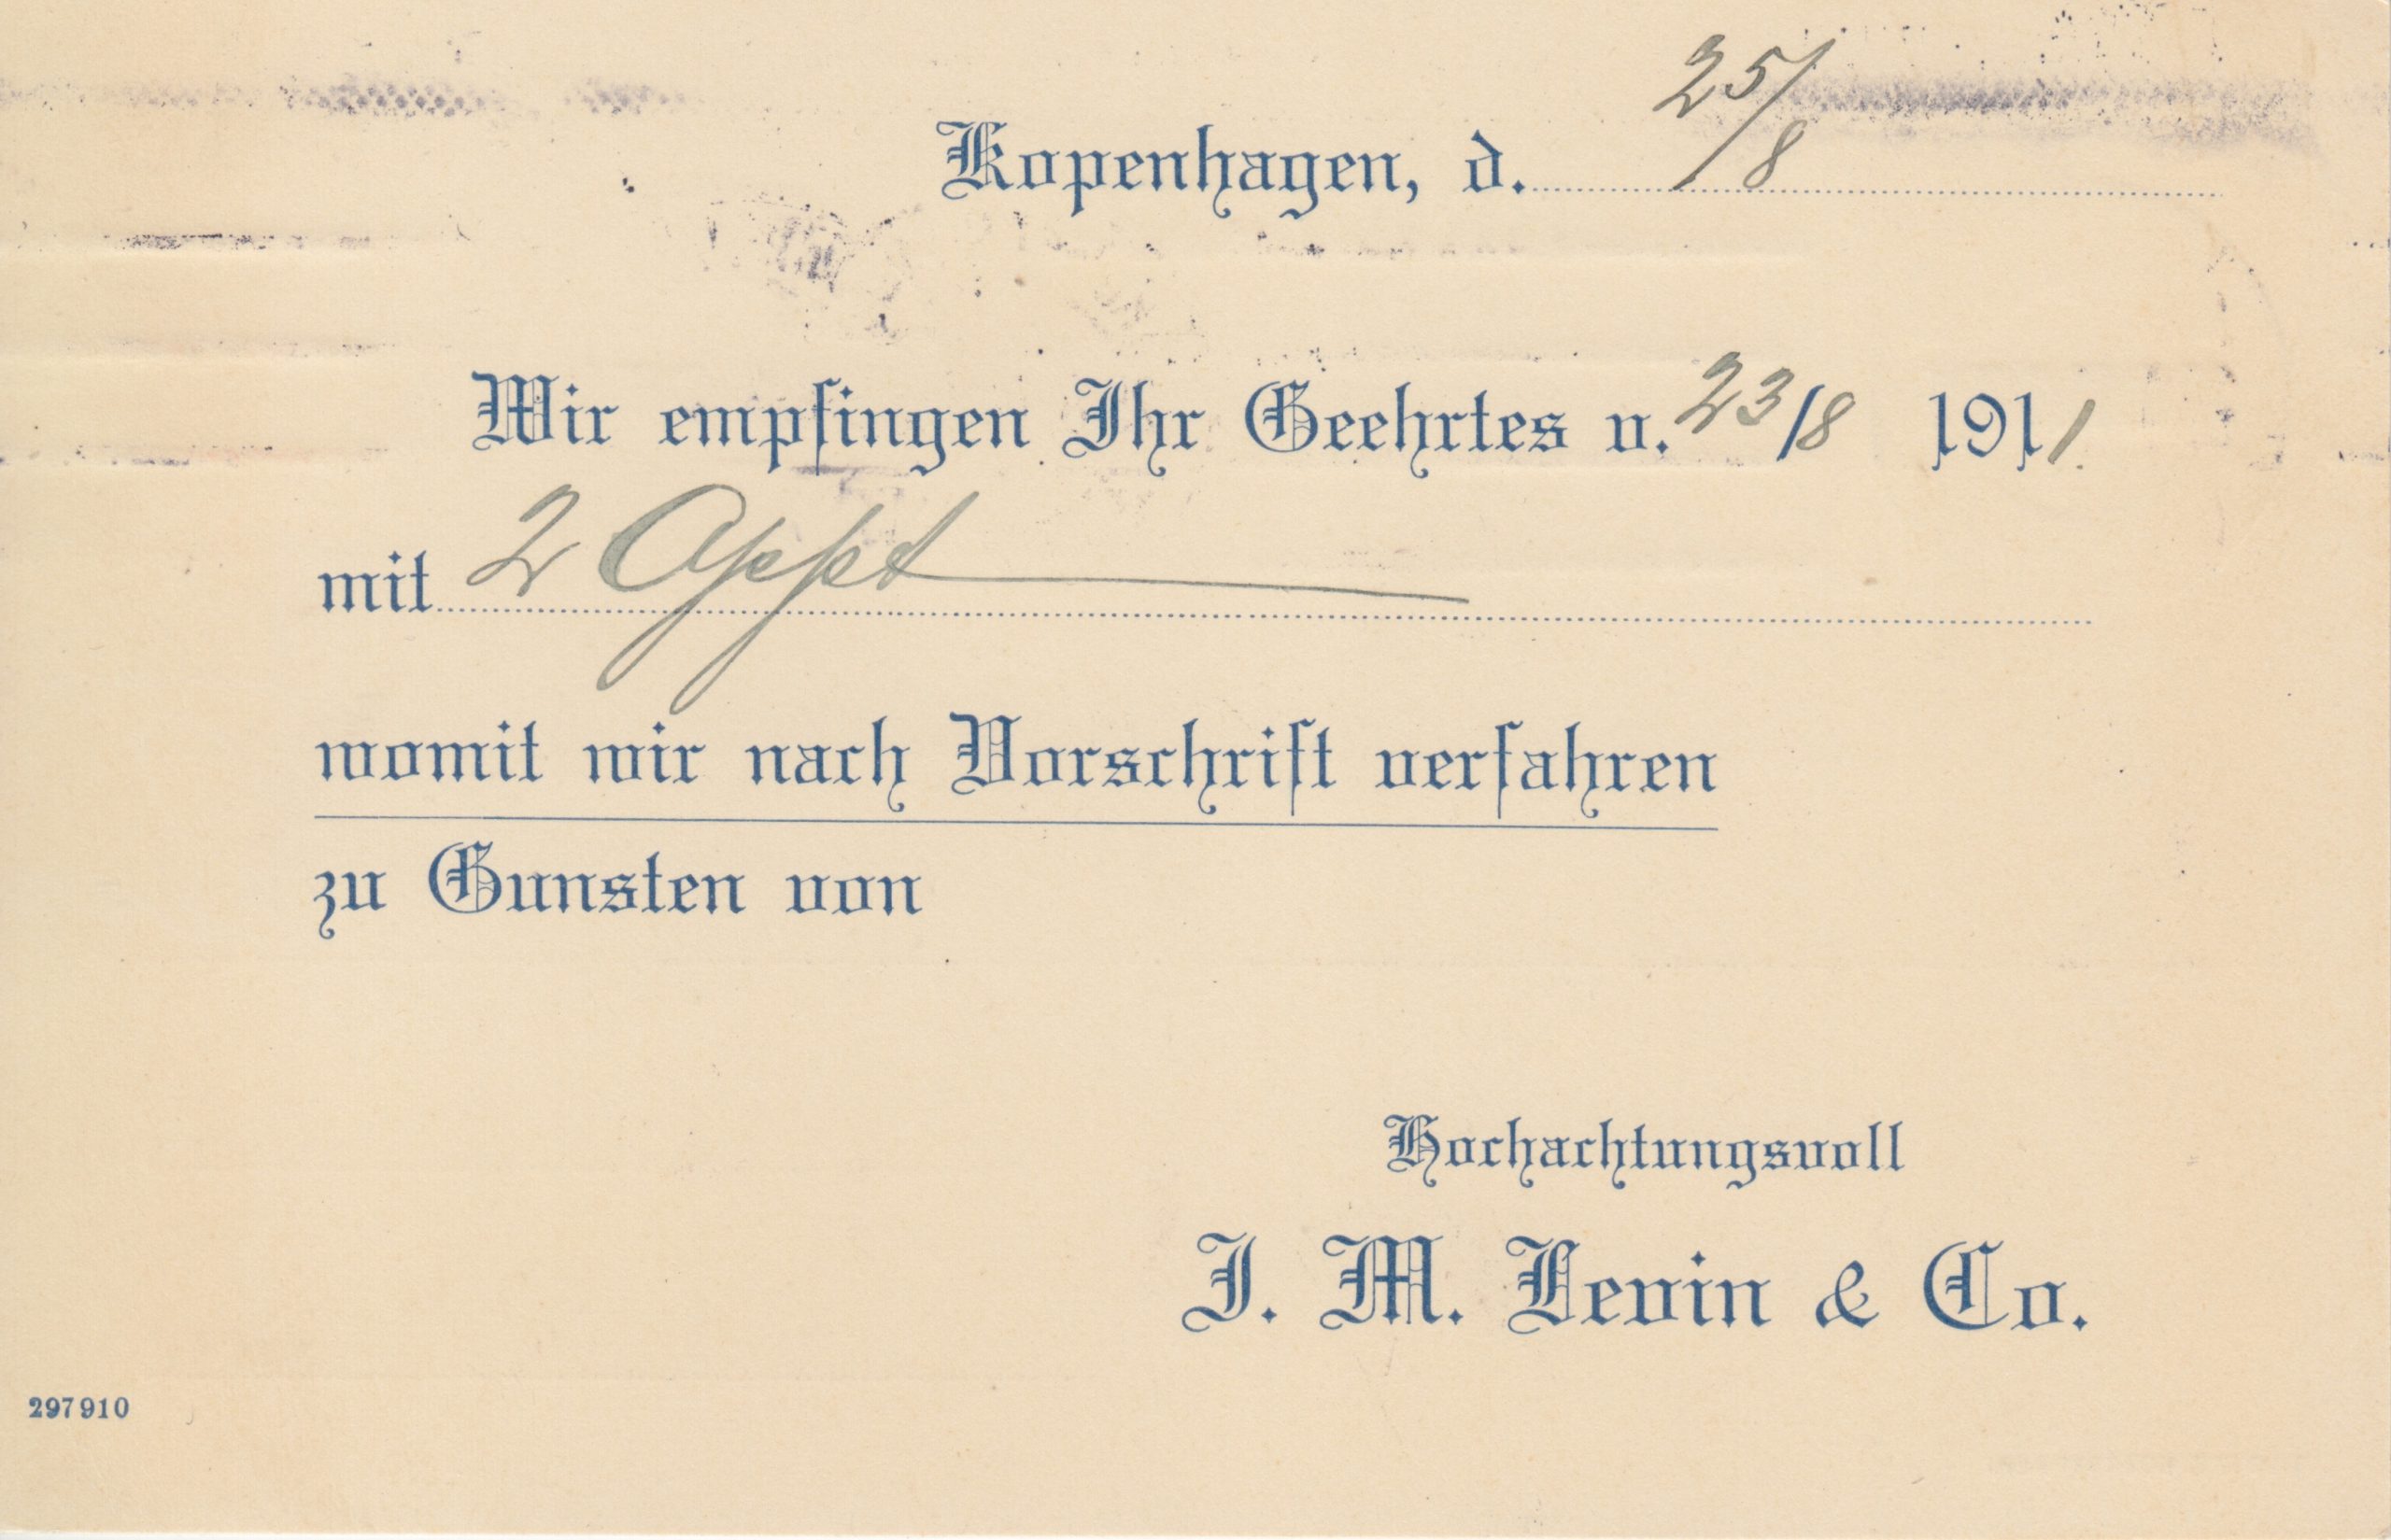 Kopenhagen, d. 25/8
Wir empfingen Ihr Geehrtes v. 23/8 1911.
mit 2 Appt
womit wir nach Vorschrift verfahren
zu Gunsten von
Hochachtungsvoll
J. M. Levin & Co.
297910